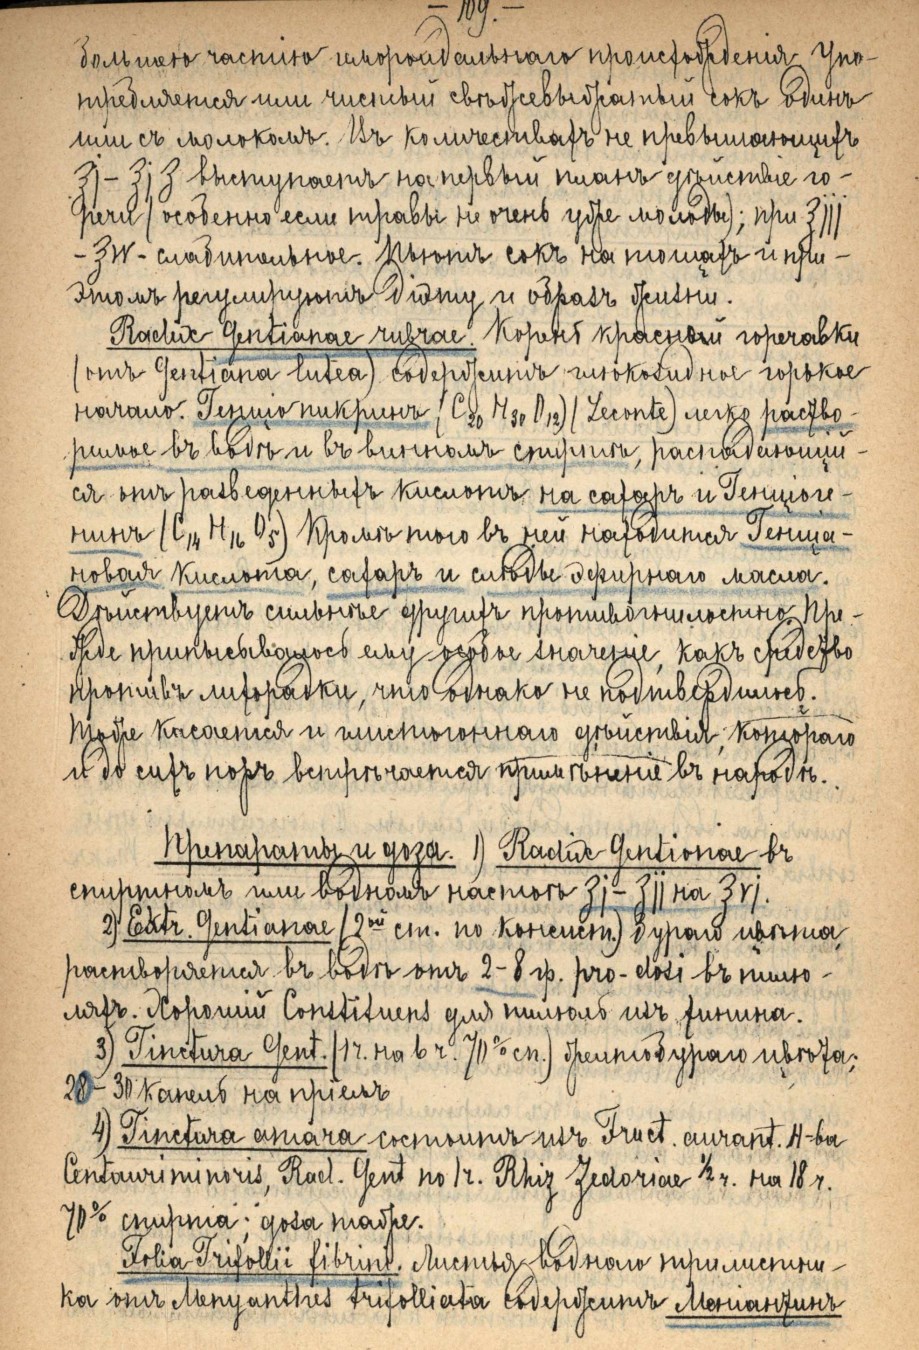 – 109. –
большею частію гемороидальнаго происхожденія. Упо-
требляется или чистый свѣжевыжатый сокъ одинъ
или съ молокомъ. Въ количествахъ не превышающихъ
ʒj – ʒj ʒ выступаетъ на первый планъ дѣйствіе го-
речи (особенно если травы не очень уже молоды); при ʒjjj
– ʒiv – слабительное. Пьютъ сокъ на тощахъ и при-
этомъ регулируютъ діэту и образъ жизни.
Radix Gentianae rubrae. Корень красной горечавки
(отъ Gentiana lutea) содержитъ глюкозидное горькое
начало. Генціопикринъ (C20 H30 O12) (Leconte) легко раство-
римое въ водѣ и въ винномъ спиртѣ, распадающій-
ся отъ разведенныхъ кислотъ на сахаръ и Генціоге-
нинъ (C14 H16 O5) Кромѣ того въ ней находится Генціа-
новая кислота, сахаръ и слѣды эфирнаго масла.
Дѣйствуетъ сильнѣе другихъ противогнилостно. Пре-
жде приписывалось ему особое значеніе, какъ средство
противъ лихорадки, что однако не подтвердилось.
Тоже касается и глистогоннаго дѣйствія, котораго
и до сихъ поръ встрѣчается примѣненіе въ народѣ.
Препараты и доза. 1) Radix Gentionae въ
спиртномъ или водномъ настоѣ ʒj – ʒjj на ʒvj.
2) Extr. Gentianae (2ой ст. по консист.) бураго цвѣта,
растворяется въ водѣ отъ 2–8 гр. pro-dosi въ пилю-
ляхъ. Хорошій Constituens для пилюль изъ хинина.
3) Tinctura Gent. (1 ч. на 6 ч. 70% сп.) желтобураго цвѣта;
20–30 капель на пріемъ
4) Tinctura amara состоитъ изъ Fruct. aurant. H-ba
Centauriminoris, Rad. Gent по 1 ч. Rhiz Zedoriae ½ ч. на 18 ч.
70% спирта; доза таже.
Folia Trifollii fibrini. Листья воднаго трилистни-
ка отъ Menyanthes trifolliata содержитъ Меніанѳинъ